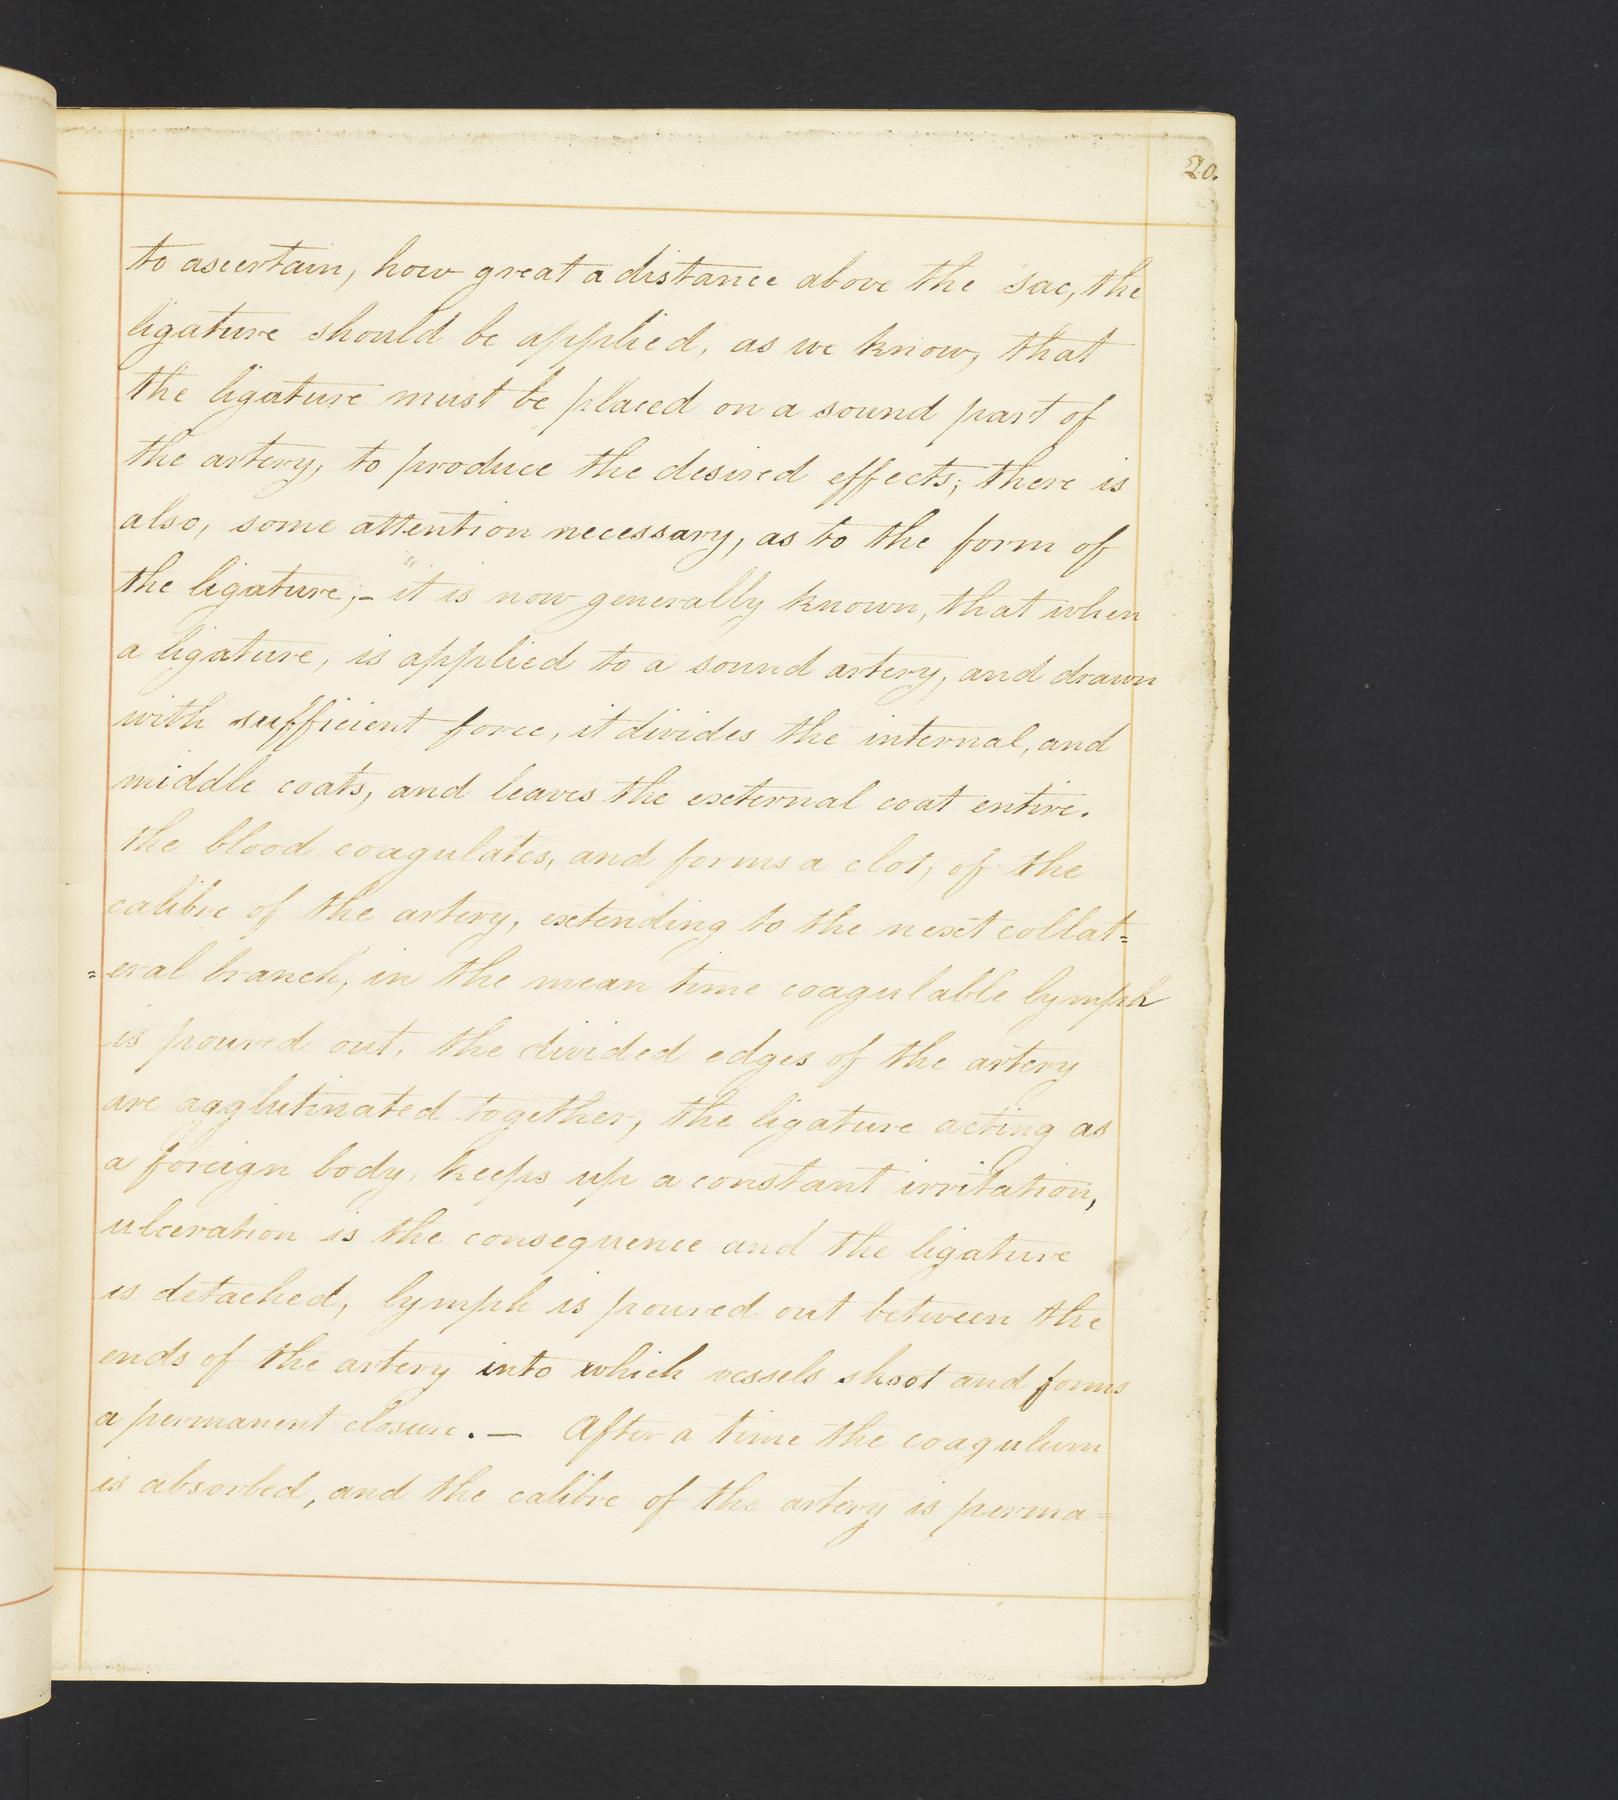 20.
to ascertain, how great a distance above the sac, the
ligature should be applied, as we know, that
the ligature must be placed on a sound part of
the artery, to produce the desired effects; there is
also, some attention necessary, as to the form of
the ligature;- it is now generally known, that when
a ligature, is applied to a sound artery, and drawn
with sufficient force, it divides the internal, and
middle coats, and leaves the external coat entire.
the blood coagulates, and forms a clot, of the
calibre of the artery, extending to the next collat=
=eral branch, in the mean time coagulable lymph
is poured out, the divided edges of the artery
are agglutinated together, the ligature acting as
a foreign body, keeps up a constant irritation,
ulceration is the consequence and the ligature
is detached, lymph is poured out between the
ends of the artery into which vessels shoot and forms
a permanent closure. — After a time the coagulum
is absorbed, and the calibre of the artery is perma=